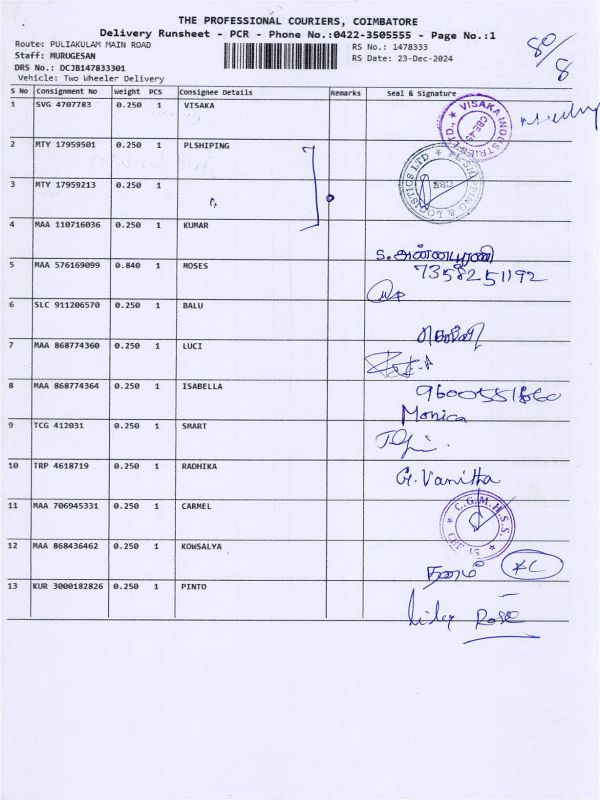 THE PROFESSIONAL COURIERS, COIMBATORE
Delivery Runsheet - PCR - Phone No.:0422-3505555 - Page No.:1
Route: PULIAKULAM MAIN ROAD
RS No.: 1478333
Staff: MURUGESAN
RS Date: 23-Dec-2024
DRS No.: DCJB147833301
Vehicle: Two Wheeler Delivery
80/8
S No Consignment No Weight PCS Consignee Details Remarks Seal & Signature
1 SVG 4707783 0.250 1 VISAKA
VISAKA INDUSTRIES LTD.
2 MTY 17959501 0.250 1 PLSHIPING
& LOGISTICS LTD
3 MTY 17959213 0.250 1
4 MAA 110716036 0.250 1 KUMAR
5 MAA 576169099 0.840 1 MOSES
7358251192
6 SLC 911206570 0.250 1 BALU
7 MAA 868774360 0.250 1 LUCI
8 MAA 868774364 0.250 1 ISABELLA
Monica
9 TCG 412031 0.250 1 SMART
10 TRP 4618719 0.250 1 RADHIKA
G. Vanitha
11 MAA 706945331 0.250 1 CARMEL
C.G.M.H.S.S.
12 MAA 868436462 0.250 1 KOWSALYA
13 KUR 3000182826 0.250 1 PINTO
Rose